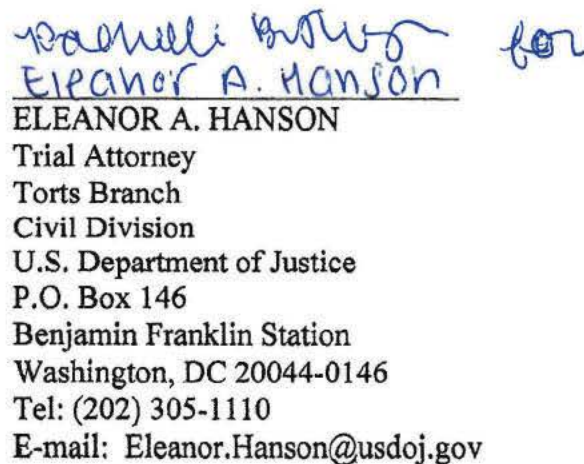 for
Eleanor A. Hanson
ELEANOR A. HANSON
Trial Attorney
Torts Branch
Civil Division
U.S. Department of Justice
P.O. Box 146
Benjamin Franklin Station
Washington, DC 20044-0146
Tel: (202) 305-1110
E-mail: Eleanor.Hanson@usdoj.gov